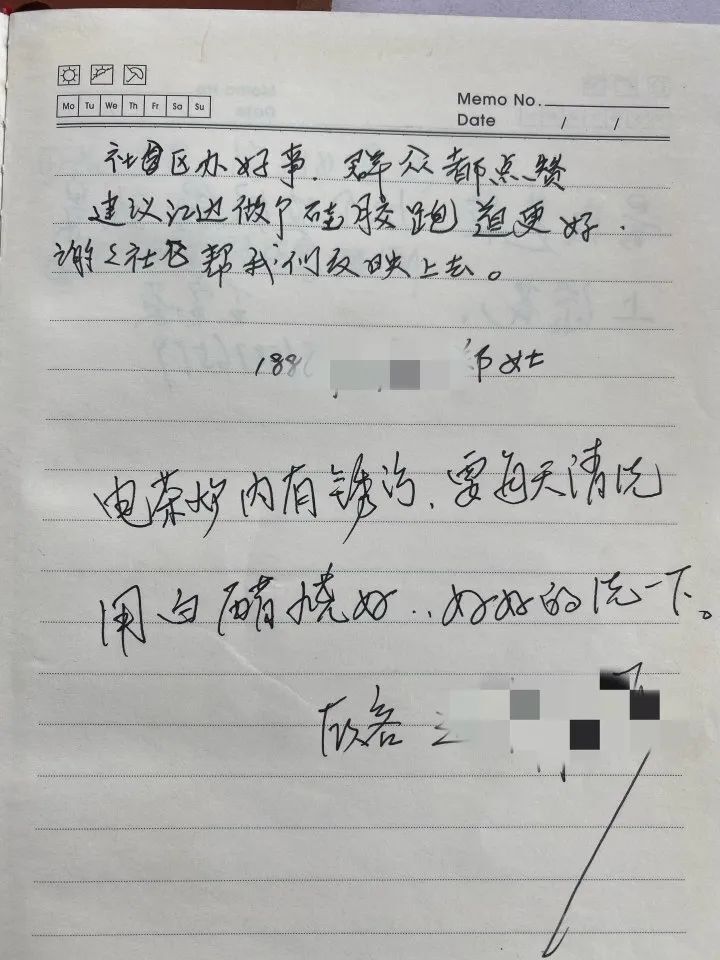 Mo Tu We Th Fr Sa Su
Memo No.
Date / /
社区办好事.群众都点赞
建议江边做个硅胶跑道更好.
谢々社区帮我们反映上去。
188
电茶炉内有锈污、要每天清洗
用白醋烧好..好好的洗一下。